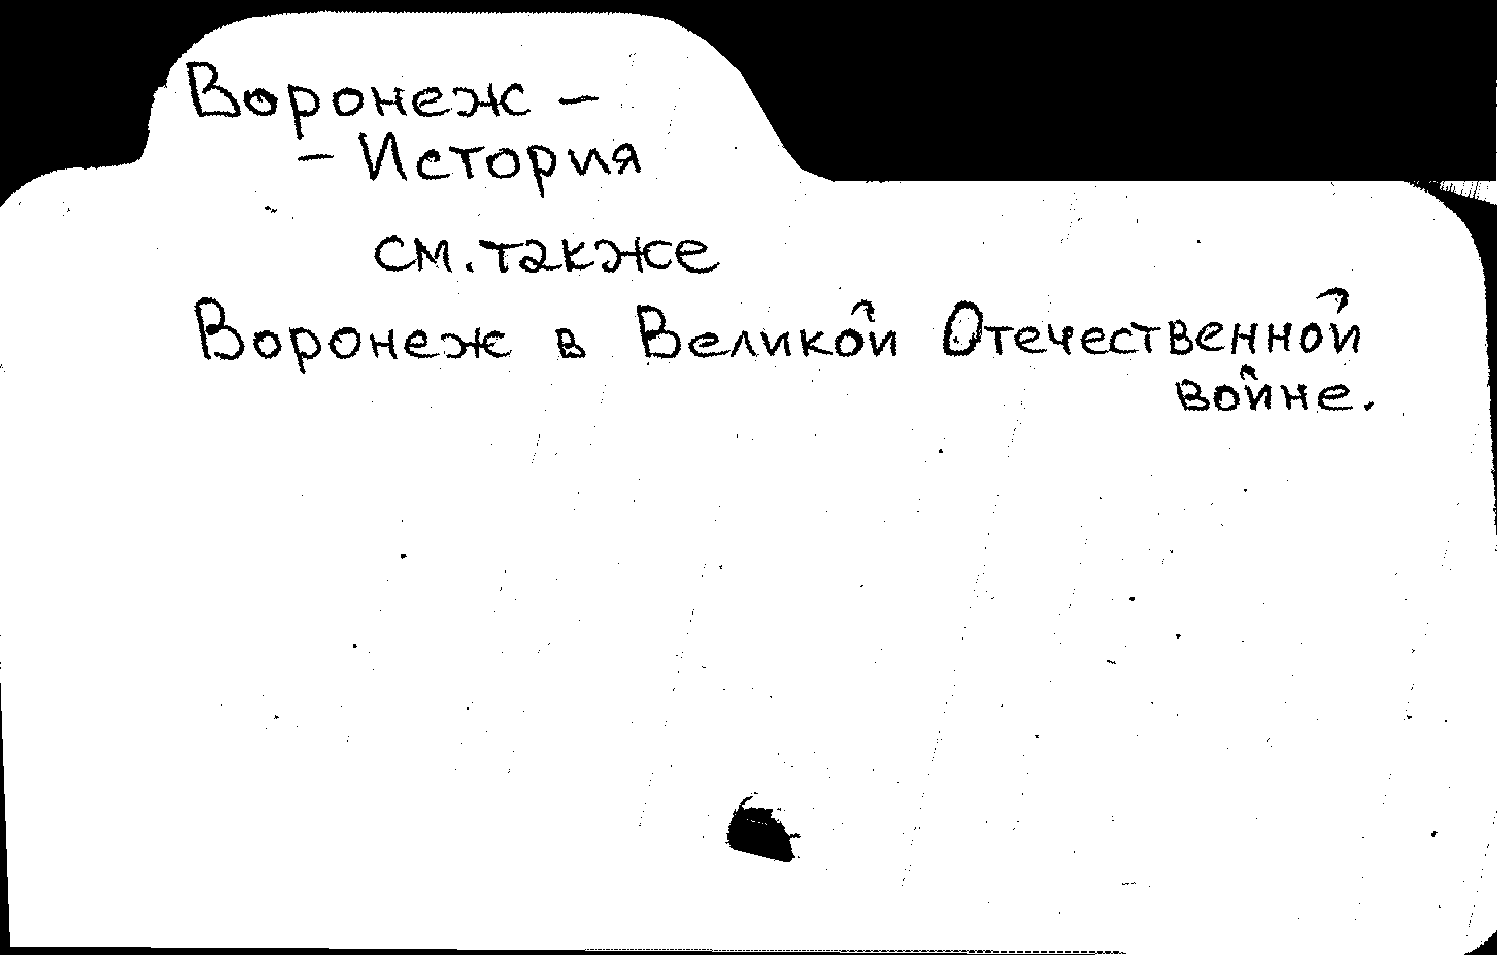 Воронеж –
– История
см. также
Воронеж в Великой Отечественной
войне.